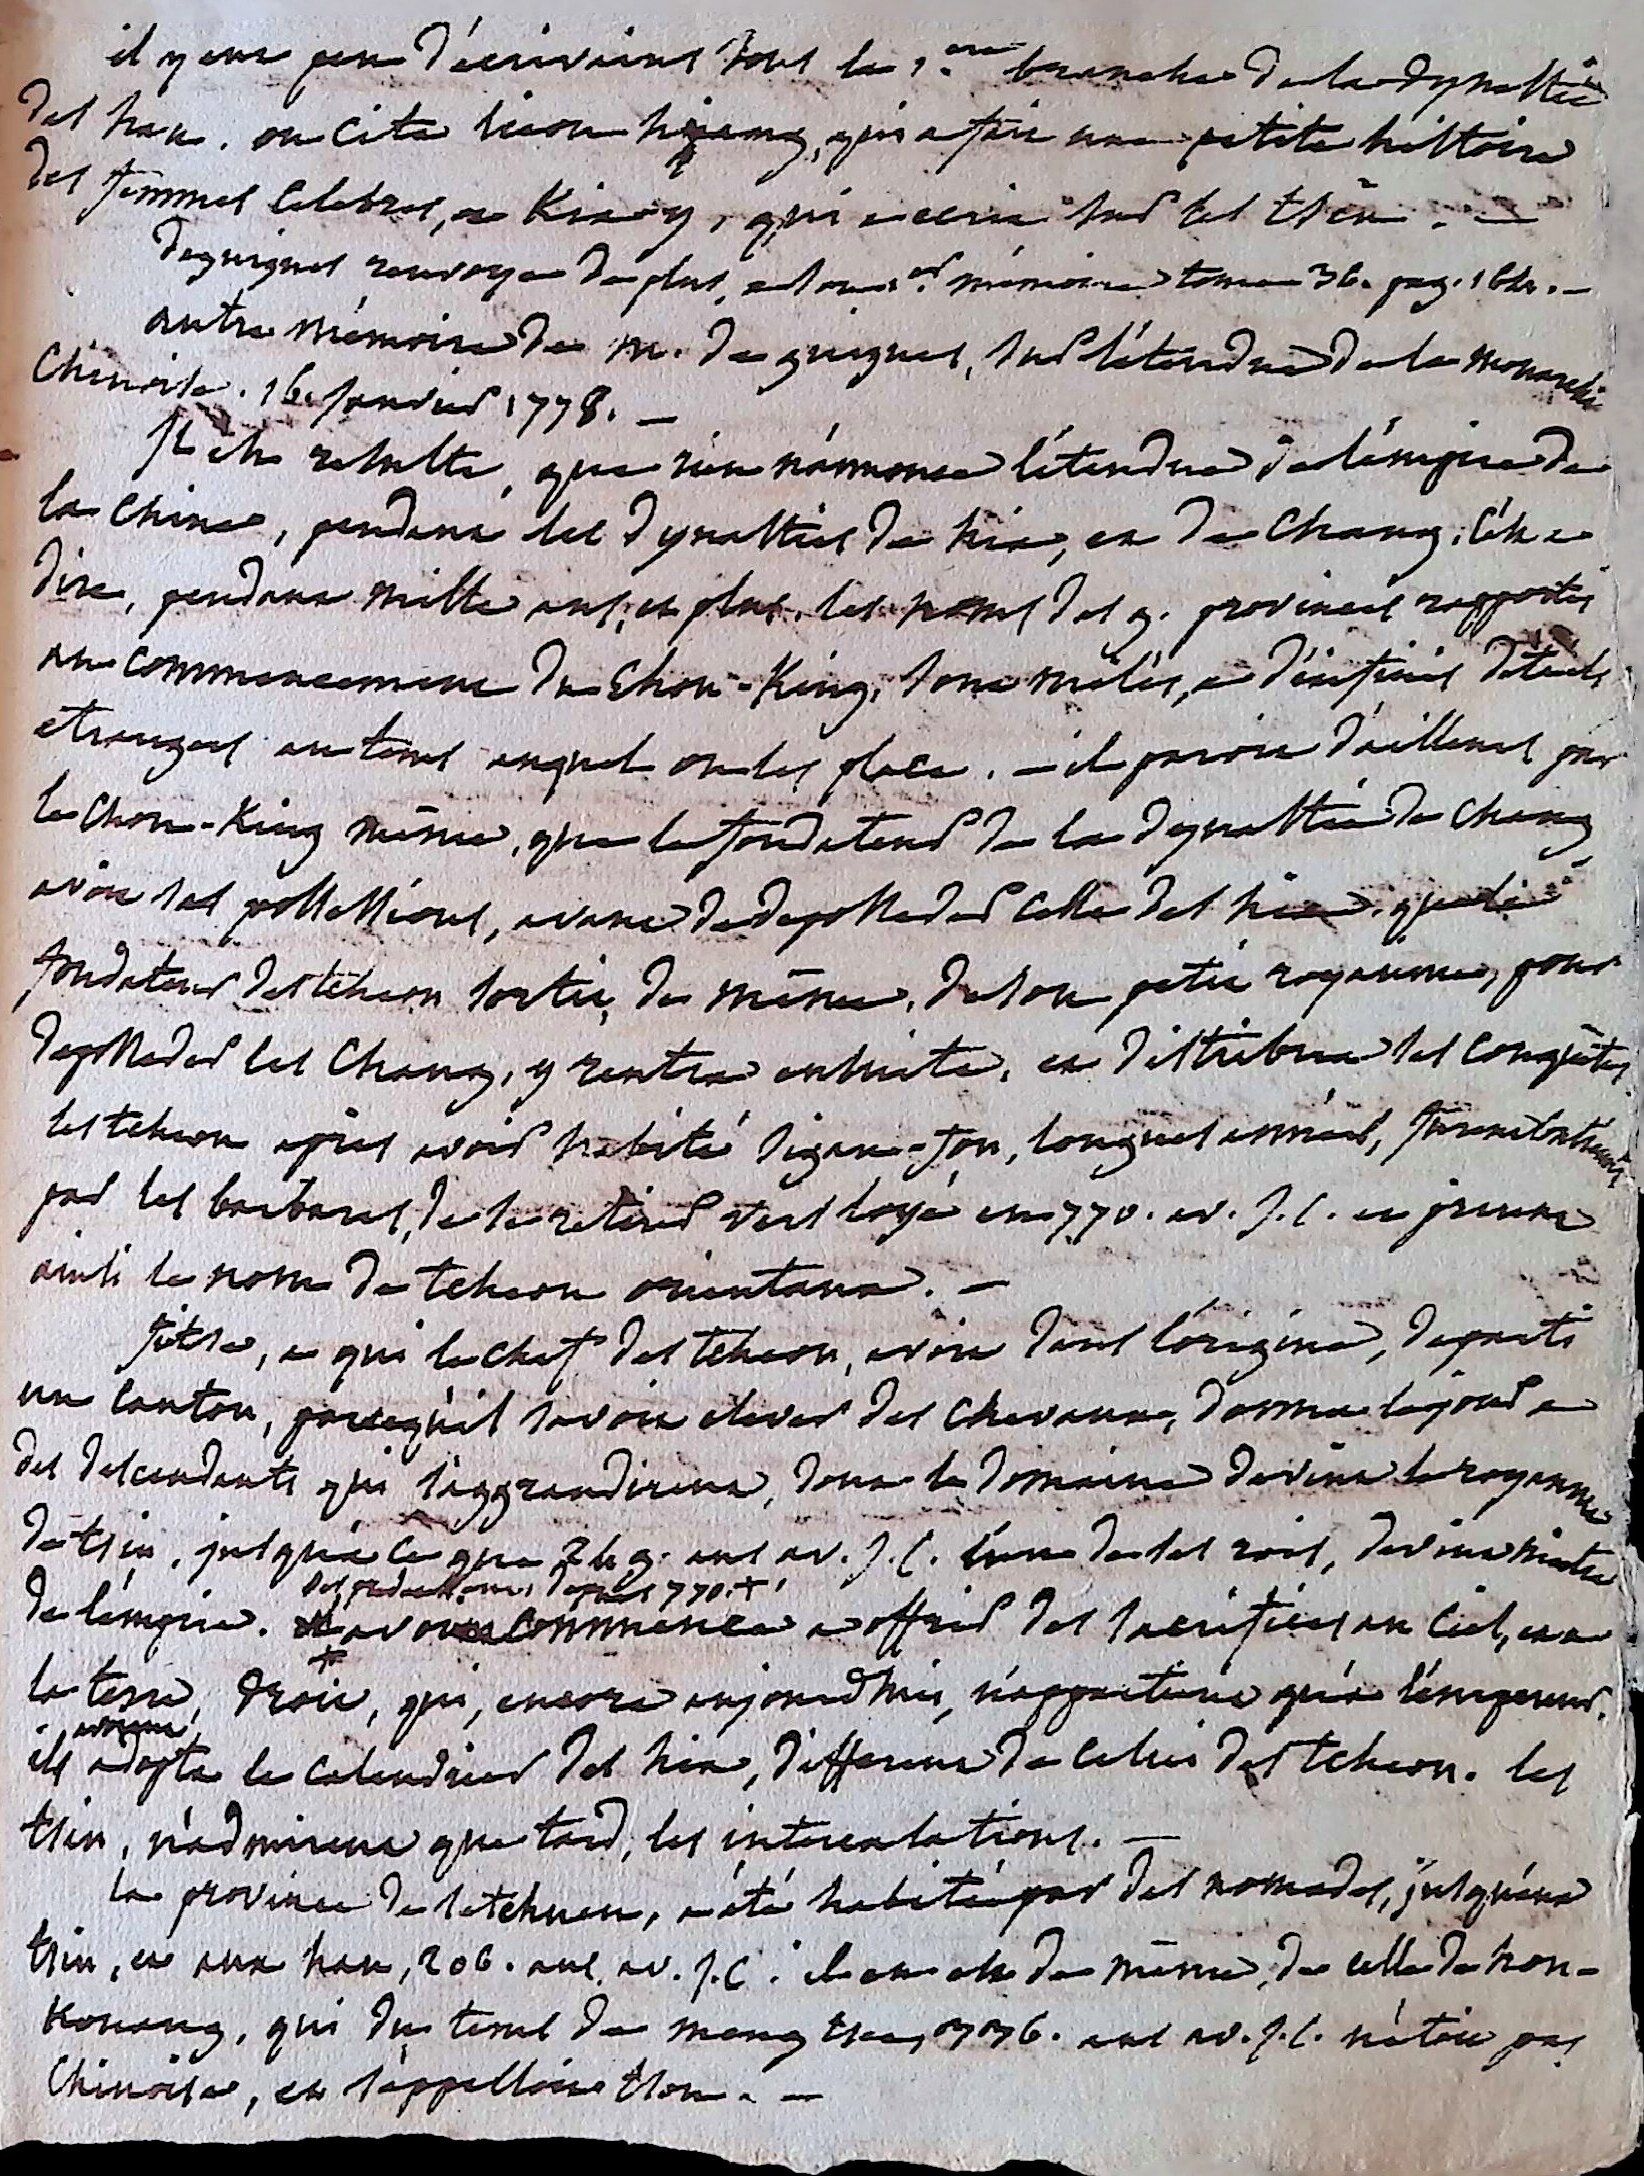 il y eut peu d'écrivains sous la 1.ere branche de la dynastie
des han. on cite lieou hiang, qui a fait une petite histoire
des femmes celebres, et Kia-y, qui a ecrit sur les tsin. —
deguignes renvoye de plus, a son 1.er mémoire tome 36. pag. 164. —
autre mémoire de m. de guignes, sur l'étendue de la monarchie
Chinoise. 16. janvier 1778. —
Il en resulte, que rien n'annonce l'étendue de l'empire de
la Chine, pendant les dynasties de hia, et de Chang, c'est a
dire, pendant mille ans, et plus. les noms des 9. provinces rapportés
au commencement du Chou-King, sont mêlés, a d'éxésifs détails
etrangers au tems auquel on les place. — il paroit d'ailleurs par
le Chou-King même, que le fondateur de la dynastie de Chang
avoit ses possessions, avant de deposseder celle des hia. que le
fondateur des tcheou sortit, de même, de son petit royaume, pour
deposseder les Chang, y rentra ensuite, et distribua ses conquêtes
les tcheou après avoir habité sigan-fou, longues années, furent contraints
par les barbares, de se retirer vers loyé en 770. av. J. C. et prirent
ainsi le nom de tcheou orientaux. —
fitse, a qui le chef des tcheou, avoit dans l'origine, departi
un canton, parcequ'il savoit elever des chevaux, donna le jour a
des descendants qui s'aggrandirent, dont le domaine devint le royaume
de tsin, jusqu'à ce que 249. ans av. J. C. l'un de ses rois, devint maitre
de l'empire. ses predecesseurs, depuis 770. + avoient commencé a offrir des sacrifices au Ciel, et a
la terre, droit, qui, encore aujourdhui, n'appartient qu'a l'empereur.
ils avoient adopté le calendrier des hia, different de celui des tcheou. les
tsin, n'admirent que tard, les intercalations. —
la province de setchuen, a été habitée par des nomades, jusqu'aux
tsin, et aux han, 206. ans av. J. C. il en est de même, de celle de hou-
Kouang, qui du tems de meng tsee, 376. ans av. J. C. n'étoit pas
Chinoise, et s'appelloit tsou. —